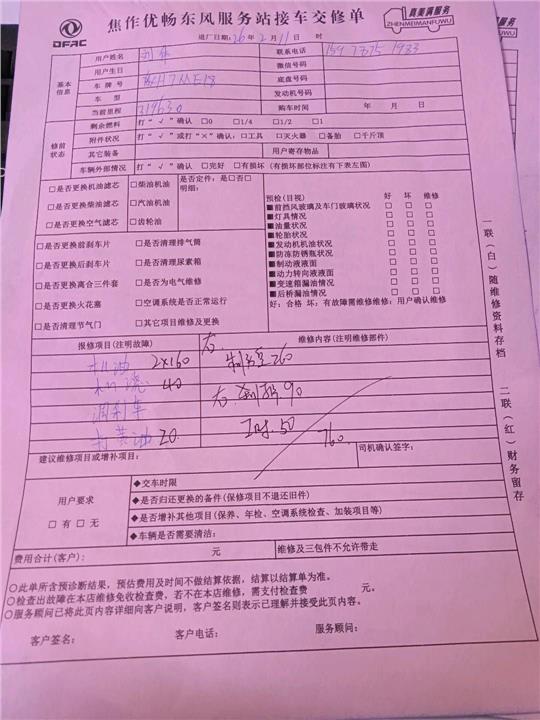 DFAC
焦作优畅东风服务站接车交修单
真美满服务
ZHENMEIMANFUWU
进厂日期:26年2月11日 时
基本信息
用户姓名
联系电话
用户生日
微信号码
车牌号
底盘号码
车型
发动机号码
当前里程 219630
购车时间 年 月 日
修前状态
剩余燃料 打“√”确认 □0 □1/4 □1/2 □1
附件状况 打“√”或打“×”确认:□工具 □灭火器 □备胎 □千斤顶
其它装备
用户寄存物品
车辆外部情况 打“√”确认 □完好 □有损坏(有损坏部位标注有下表左图)
□是否更换机油滤芯 □柴油机油
□是否更换柴油滤芯 □汽油机油
□是否更换空气滤芯 □齿轮油
是否定件:是□否□
明细:
□是否更换前刹车片 □是否清理排气筒
□是否更换后刹车片 □是否清理尿素箱
□是否更换离合三件套 □是否为电气维修
□是否更换火花塞 □空调系统是否正常运行
□是否清理节气门 □其它项目维修及更换
预检(目视) 好 坏 维修
■前挡风玻璃及车门玻璃状况 □ □ □
■灯具情况 □ □ □
■油量状况 □ □ □
■轮胎状况 □ □ □
■发动机机油状况 □ □ □
■防冻防锈瓶状况 □ □ □
■制动液液面 □ □ □
■动力转向液液面 □ □ □
■变速箱漏油情况 □ □ □
■后桥漏油情况 □ □ □
好:合格 坏:有故障需维修维修:用户确认维修
报修项目(注明故障)
维修内容(注明维修部件)
机油 2×160
右
260
40
右 90
调刹车
工时.50
打黄油 20
760
建议维修项目或增补项目:
司机确认签字:
用户要求
□有 □无
◆交车时限
◆是否归还更换的备件(保修项目不退还旧件)
◆是否增补其他项目(保养、年检、空调系统检查、加装项目等)
◆车辆是否需要清洁:
费用合计(客户): 元
维修及三包件不允许带走
○此单所含预诊断结果,预估费用及时间不做结算依据,结算以结算单为准。
○检查出故障在本店维修免收检查费,若不在本店维修,需支付检查费 元。
○服务顾问已将此页内容详细向客户说明,客户签名则表示已理解并接受此页内容。
客户签名:
客户电话:
服务顾问:
一联(白)随维修资料存档
二联(红)财务留存